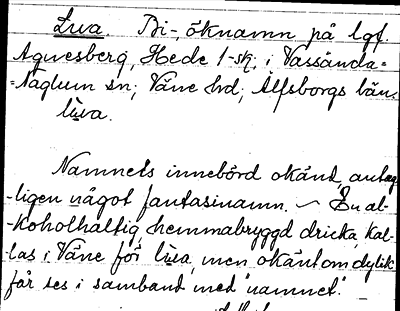 Luva Bi-, öknamn på lgf.
Agnesberg, Hede 1-sk, i Vassända-
-Naglum sn; Väne hd; Älfsborgs län.
lùva.
Namnets innebörd okänd, antag-
-ligen något fantasinamn. ~ En al-
-koholhaltig hemmabryggd dricka, kal-
las i Väne för lùva, men okänt om dylik
får ses i samband med "namnet".